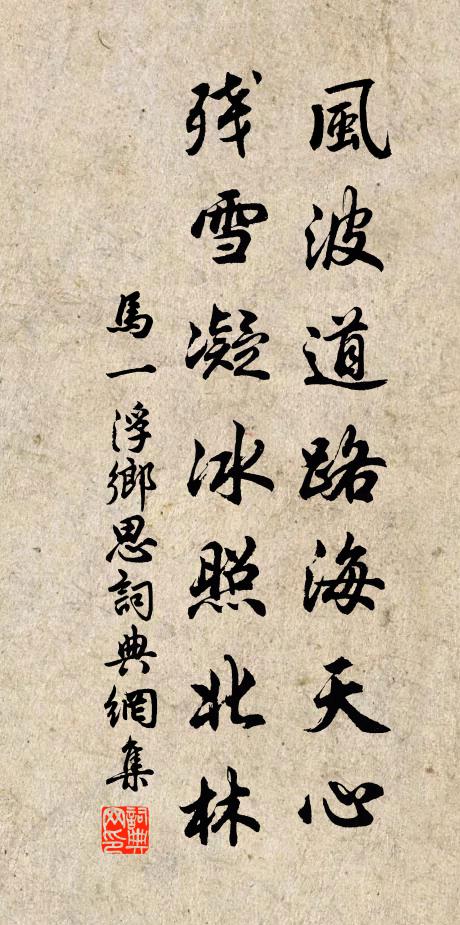 風波道路海天心
残雪凝冰照北林
馬一浮鄉思詞典網集
詞典网印